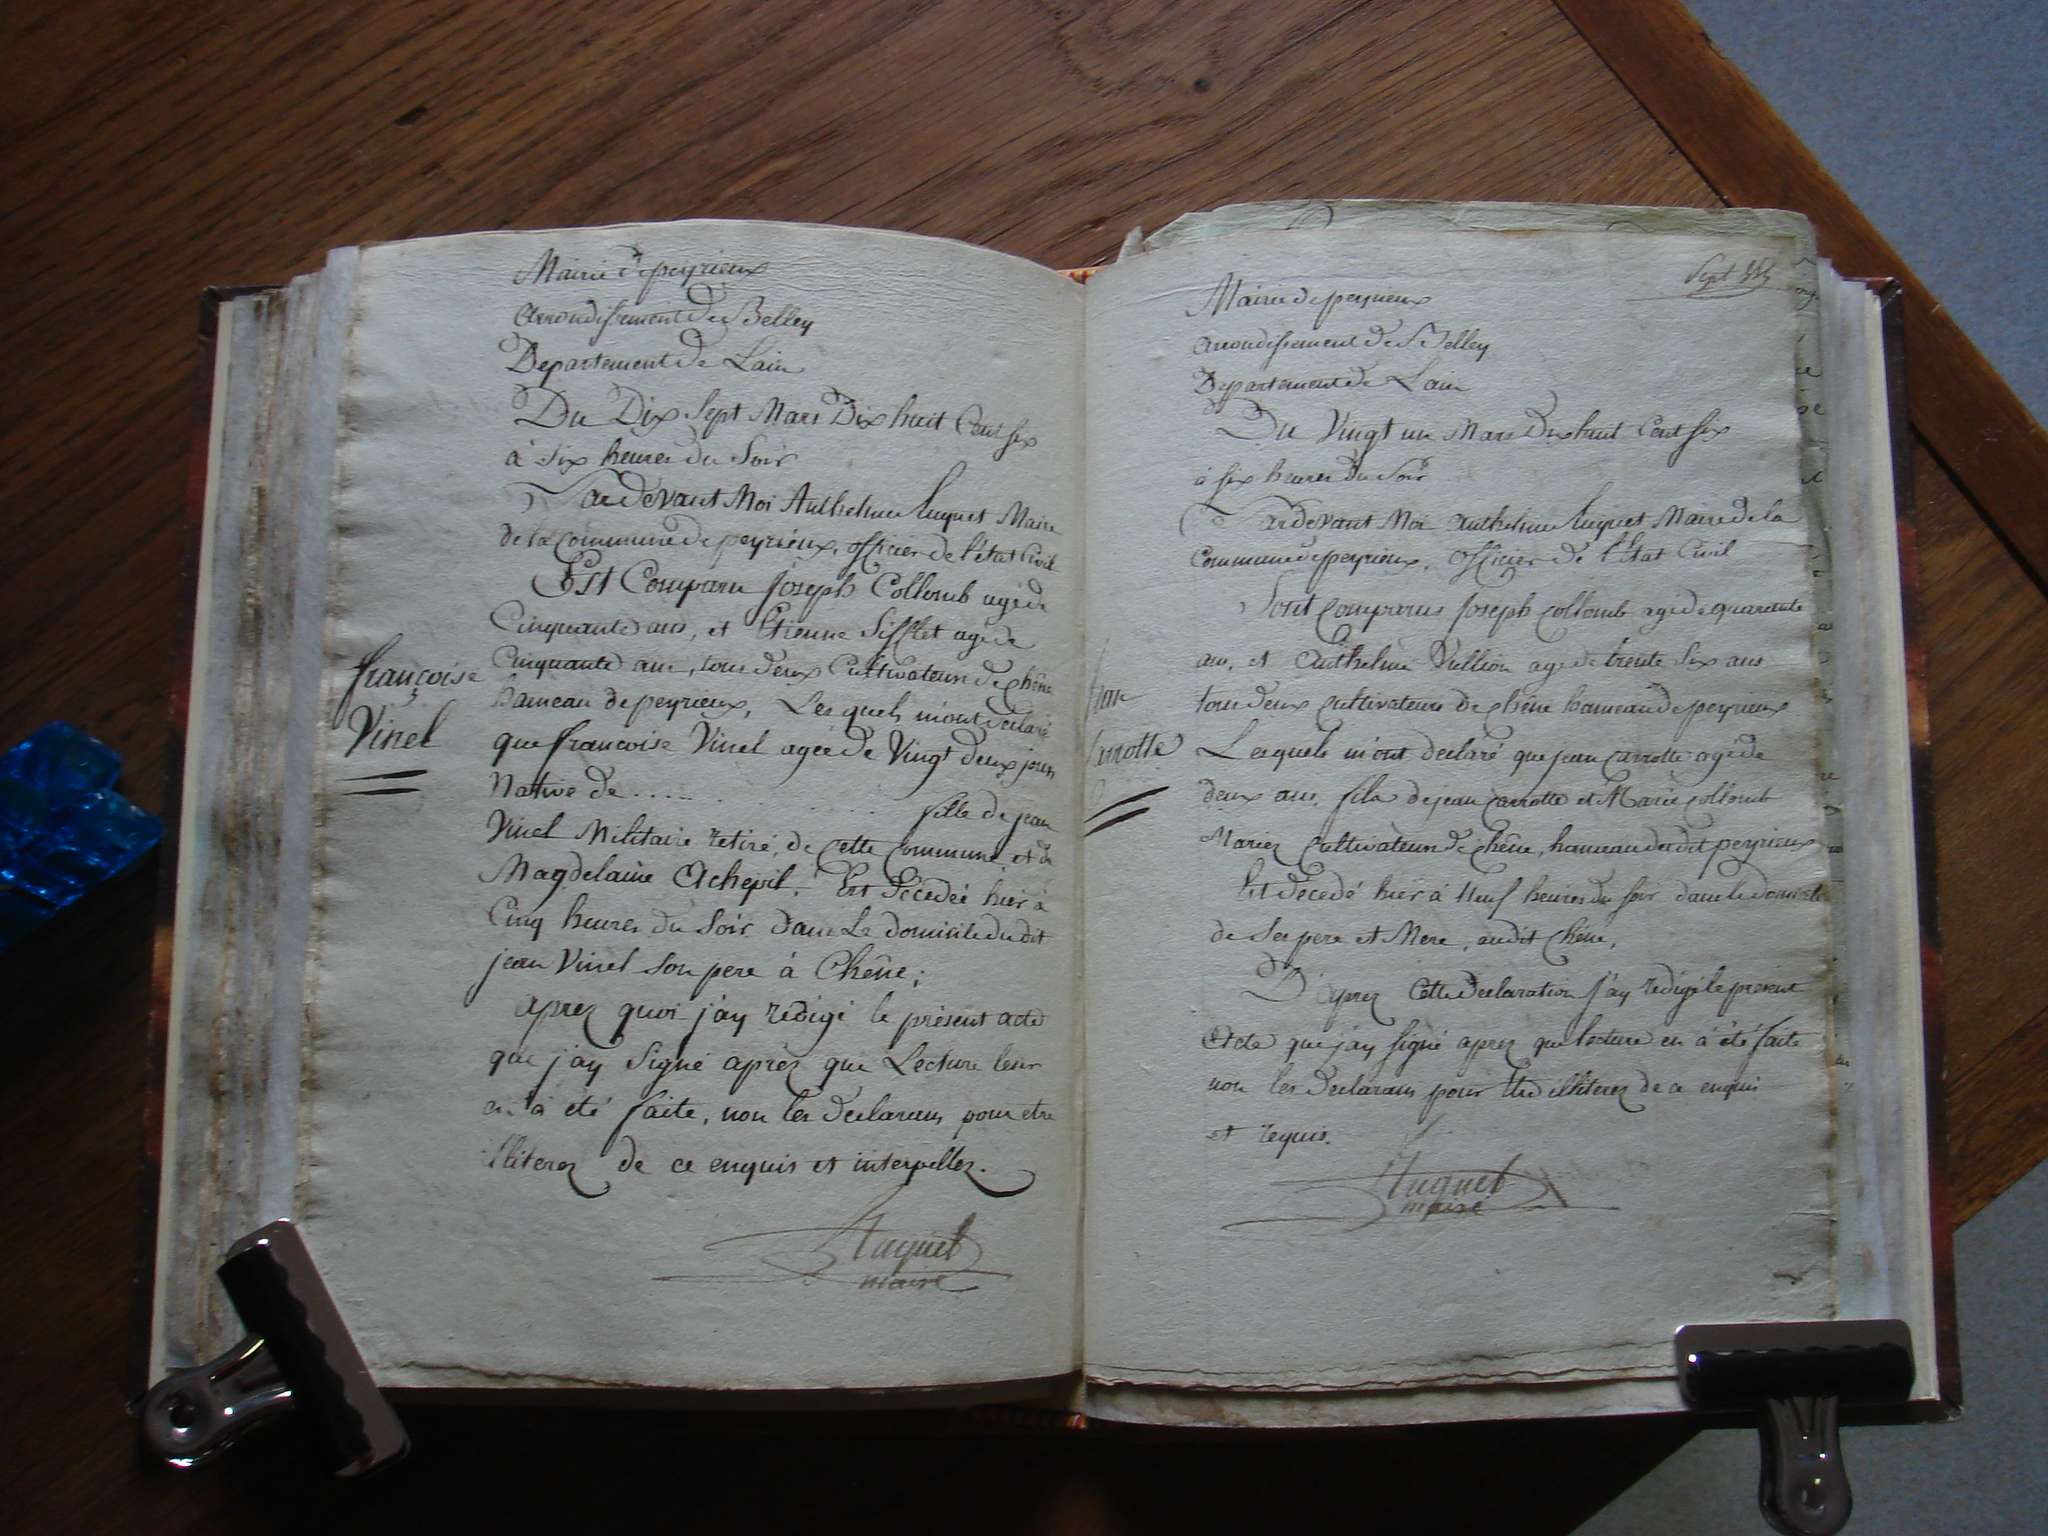 Mairie de peyrieux
Arrondissement de Belley
Departement de Lain
Du Dix Sept Mars Dix huit Cent six
à Six heures du Soir
Pardevant Moi Anthelme huguet Maire
de la Commune de peyrieux, officier de l'état Civil
Est Comparu Joseph Collomb agé de
Cinquante ans, et Etienne Sifflet agé de
Cinquante ans, tous deux Cultivateurs de chêne
hameau de peyrieux, Lesquels m'ont declaré
que francoise Vinel agée de Vingt deux jours
Native de ......
fille de jean
Vinel Militaire retiré, de cette Commune et de
Magdelaine, Est décedée hier à
Cinq heures du Soir dans Le domicile du dit
jean Vinel Son pere à Chêne;
aprez quoi j'ay redigé le présent acte
que j'ay Signé aprèz que Lecture leur
en à été faite, non les declarans pour etre
illiterez de ce enquis et interpellez.
huguet
maire
françoise
Vinel
Sept
Mairie de peyrieux
arrondissement de Belley
Departement de Lain
Du Vingt un Mars Dix huit Cent six
à six heures du Soir
Pardevant Moi anthelme huguet Maire de la
Commune de peyrieux, officier de l'État Civil
Sont Comparus Joseph Collomb agé de quarante
ans, et Anthelme Vullion agé de trente Six ans
tous deux cultivateurs de chêne hameau de peyrieux
Lesquels m'ont declaré que jean Carrotte agé de
deux ans, fils de jean Carrotte et Marie Collomb
Mariez Cultivateurs de Chêne, hameau du dit peyrieux
Est décedé hier à Neuf heures du soir dans le domicile
de Ses pere et Mere, audit Chêne,
D'aprez Cette declaration j'ay redigé le présent
Acte que j'ay signé aprez que lecture en à été faite
non les declarans pour Etre illiterez de ce enquis
et requis.
huguet
maire
jean
Carrotte